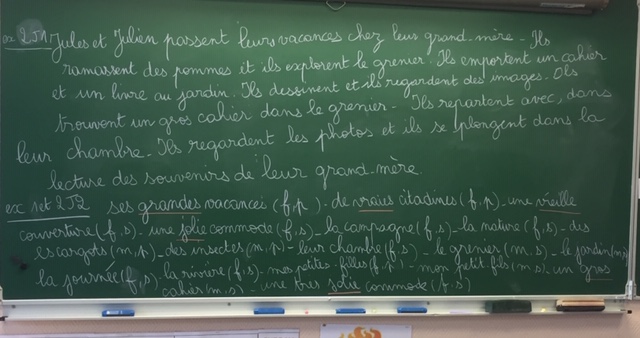 ex 2J1 Jules et Julien passent leurs vacances chez leur grand-mère - Ils
ramassent des pommes et ils explorent le grenier. Ils emportent un cahier
et un livre au jardin. Ils dessinent et ils regardent des images. Ils
trouvent un gros cahier dans le grenier - Ils repartent avec, dans
leur chambre - Ils regardent les photos et ils se plongent dans la
lecture des souvenirs de leur grand-mère.
ex 1 et 2J2 ses grandes vacances (f,p) - de vraies citadines (f,p) - une vieille
couverture (f,s) - une jolie commode (f,s) - la campagne (f,s) - la nature (f,s) - des
escargots (m,p) - des insectes (m,p) - leur chambre (f,s) - le grenier (m,s) - le jardin (m,s)
la journée (f,s) la rivière (f,s) - mes petites-filles (f,p) - mon petit-fils (m,s) - un gros
cahier (m,s) - une très jolie commode (f,s)